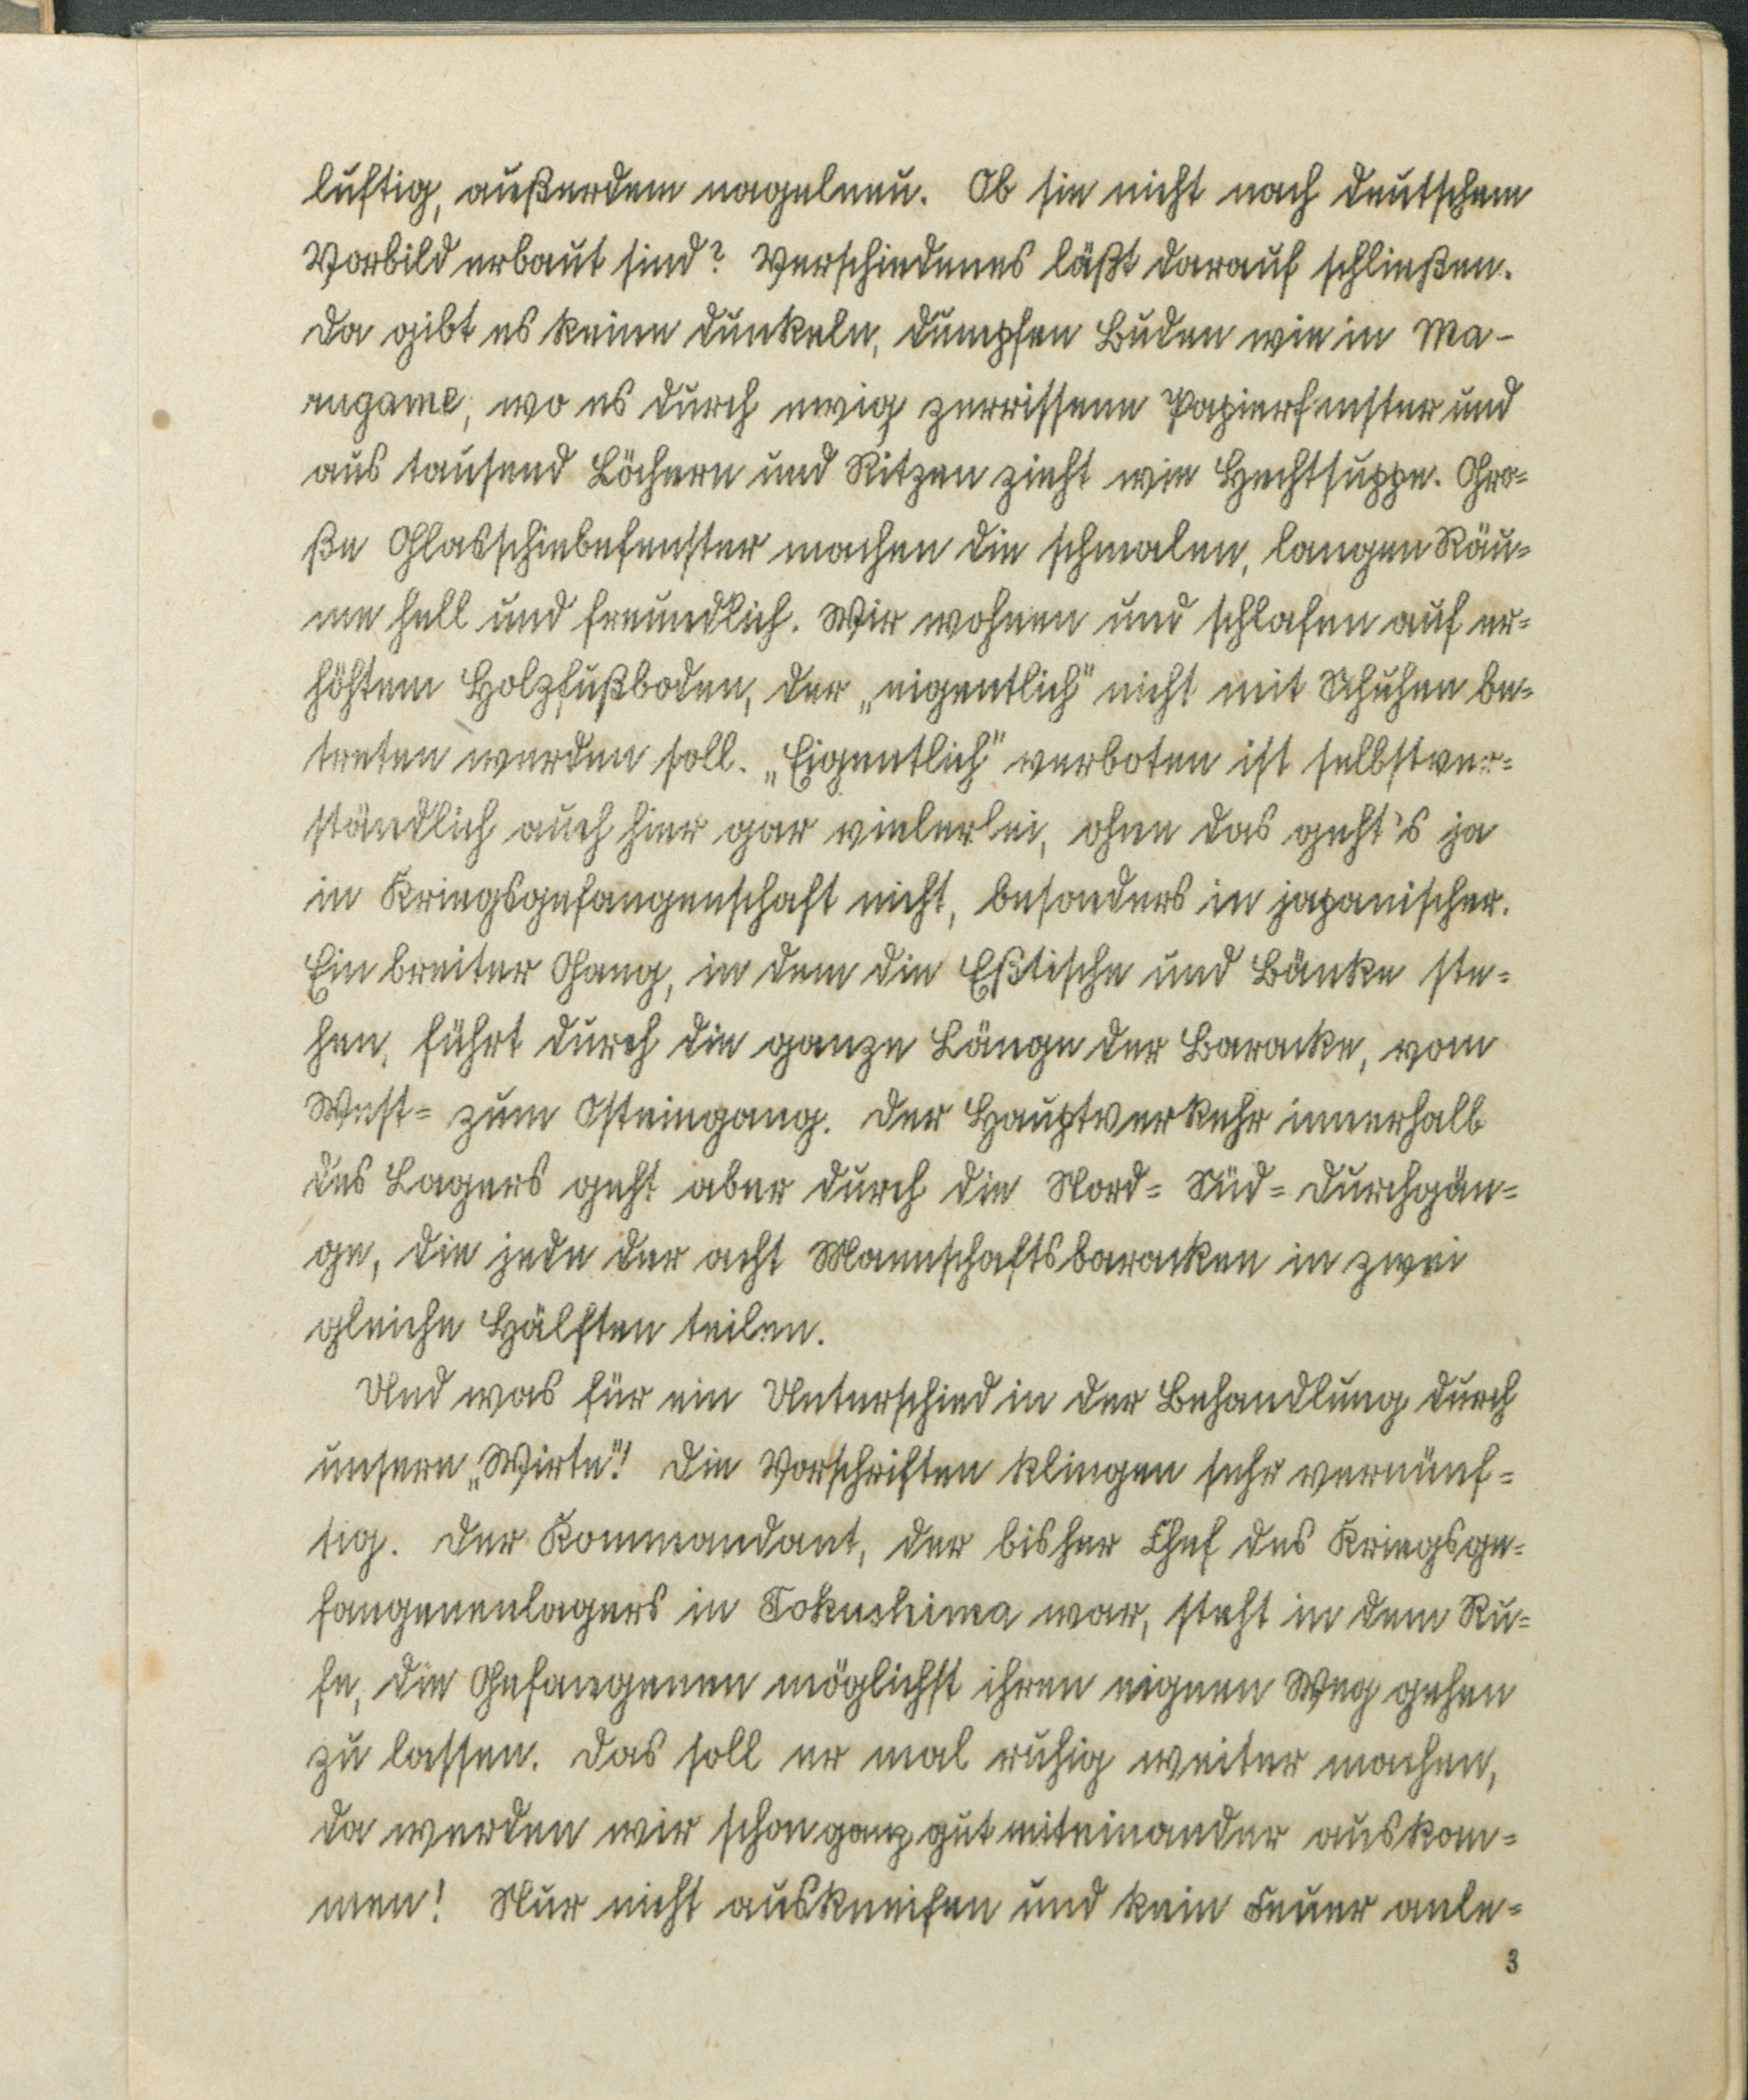 luftig, außerdem nagelneu. Ob sie nicht nach deutschem
Vorbild erbaut sind? Verschiedenes läßt darauf schließen.
Da gibt es keine dunkeln, dumpfen Buden wie in Ma-
rugame, wo es durch ewig zerrissene Papierfenster und
aus tausend Löchern und Ritzen zieht wie Hechtsuppe. Gro=
ße Glasschiebefenster machen die schmalen, langen Räu=
me hell und freundlich. Wir wohnen und schlafen auf er=
höhtem Holzfußboden, der „eigentlich" nicht mit Schuhen be=
treten werden soll. „Eigentlich" verboten ist selbstver=
ständlich auch hier gar vielerlei, ohne das geht's ja
in Kriegsgefangenschaft nicht, besonders in japanischer.
Ein breiter Gang, in dem die Eßtische und Bänke ste=
hen, führt durch die ganze Länge der Baracke, vom
West= zum Osteingang. Der Hauptverkehr innerhalb
des Lagers geht aber durch die Nord= Süd= Durchgän=
ge, die jede der acht Mannschaftsbaracken in zwei
gleiche Hälften teilen.
Und was für ein Unterschied in der Behandlung durch
unsere „Wirte"! Die Vorschriften klingen sehr vernünf=
tig. Der Kommandant, der bisher Chef des Kriegsge=
fangenenlagers in Tokushima war, steht in dem Ru=
fe, die Gefangenen möglichst ihren eignen Weg gehen
zu lassen. Das soll er mal ruhig weiter machen,
da werden wir schon ganz gut miteinander auskom=
men! Nur nicht auskneifen und kein Feuer anle=
3